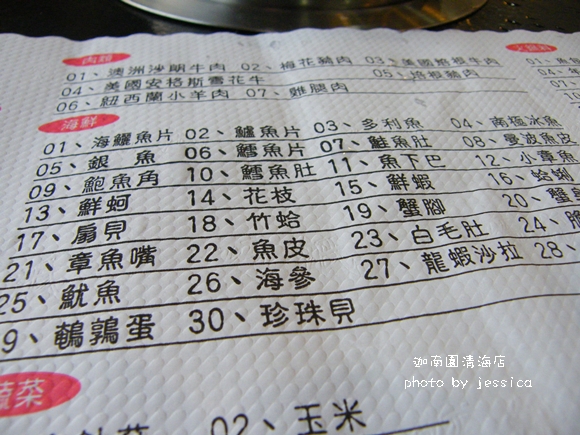 肉類
01、澳洲沙朗牛肉 02、梅花豬肉 03、美國培根牛肉
04、美國安格斯雪花牛 05、培根豬肉
06、紐西蘭小羊肉 07、雞腿肉
火鍋料
01、魚
04、
海鮮
01、海鱺魚片 02、鱸魚片 03、多利魚 04、南極冰魚
05、銀魚 06、鯛魚片 07、鮭魚肚 08、曼波魚皮
09、鮑魚角 10、鱈魚肚 11、魚下巴 12、小章魚
13、鮮蚵 14、花枝 15、鮮蝦 16、蛤蜊
17、扇貝 18、竹蛤 19、蟹腳 20、蟹
21、章魚嘴 22、魚皮 23、白毛肚 24、
25、魷魚 26、海參 27、龍蝦沙拉 28、
9、鵪鶉蛋 30、珍珠貝
蔬菜
02、玉米
迦南園清海店
photo by jessica